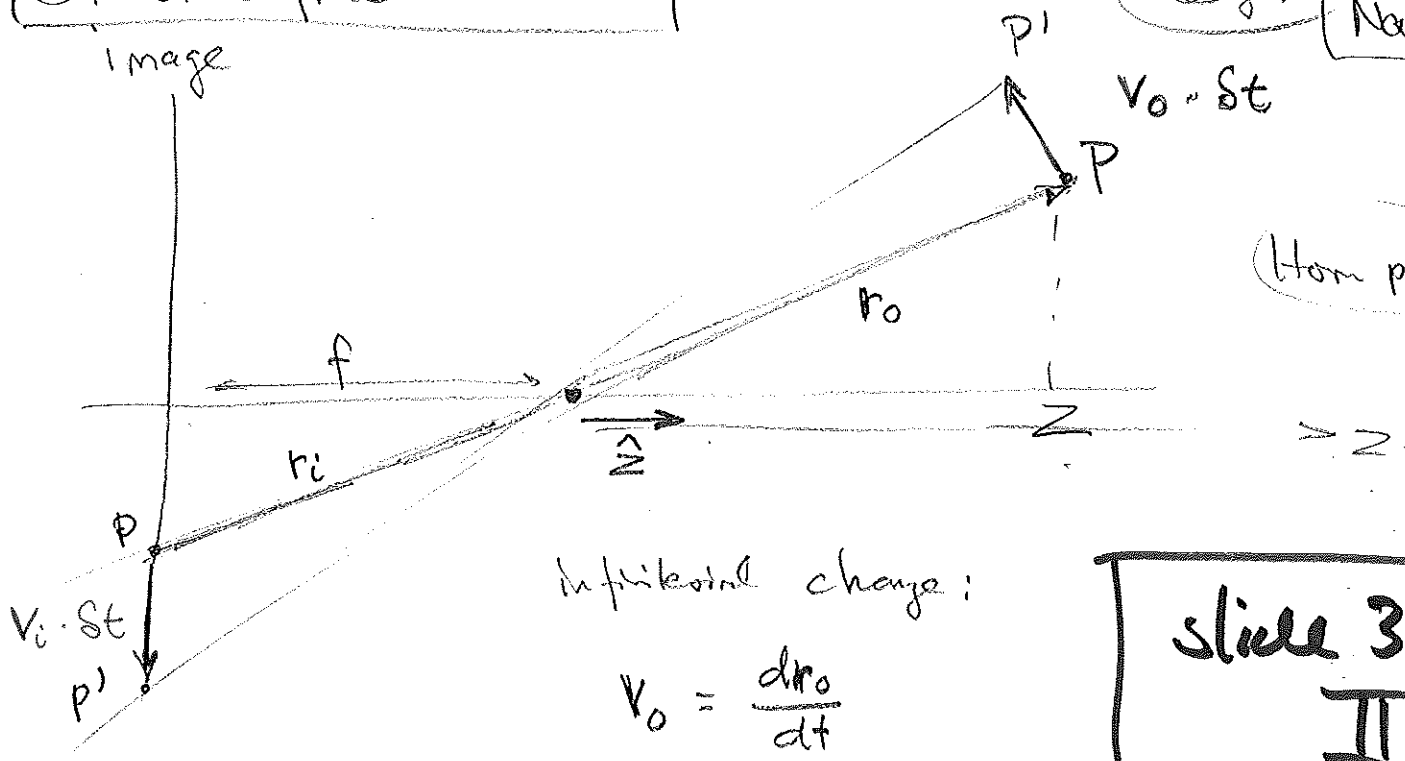 Image
P'
V₀ · δt
P
(Horn p
r₀
f
ẑ
Z
> z
rᵢ
P
Vᵢ · δt
P'
infinitesimal change:
V₀ = dr₀/dt
slide 3
II